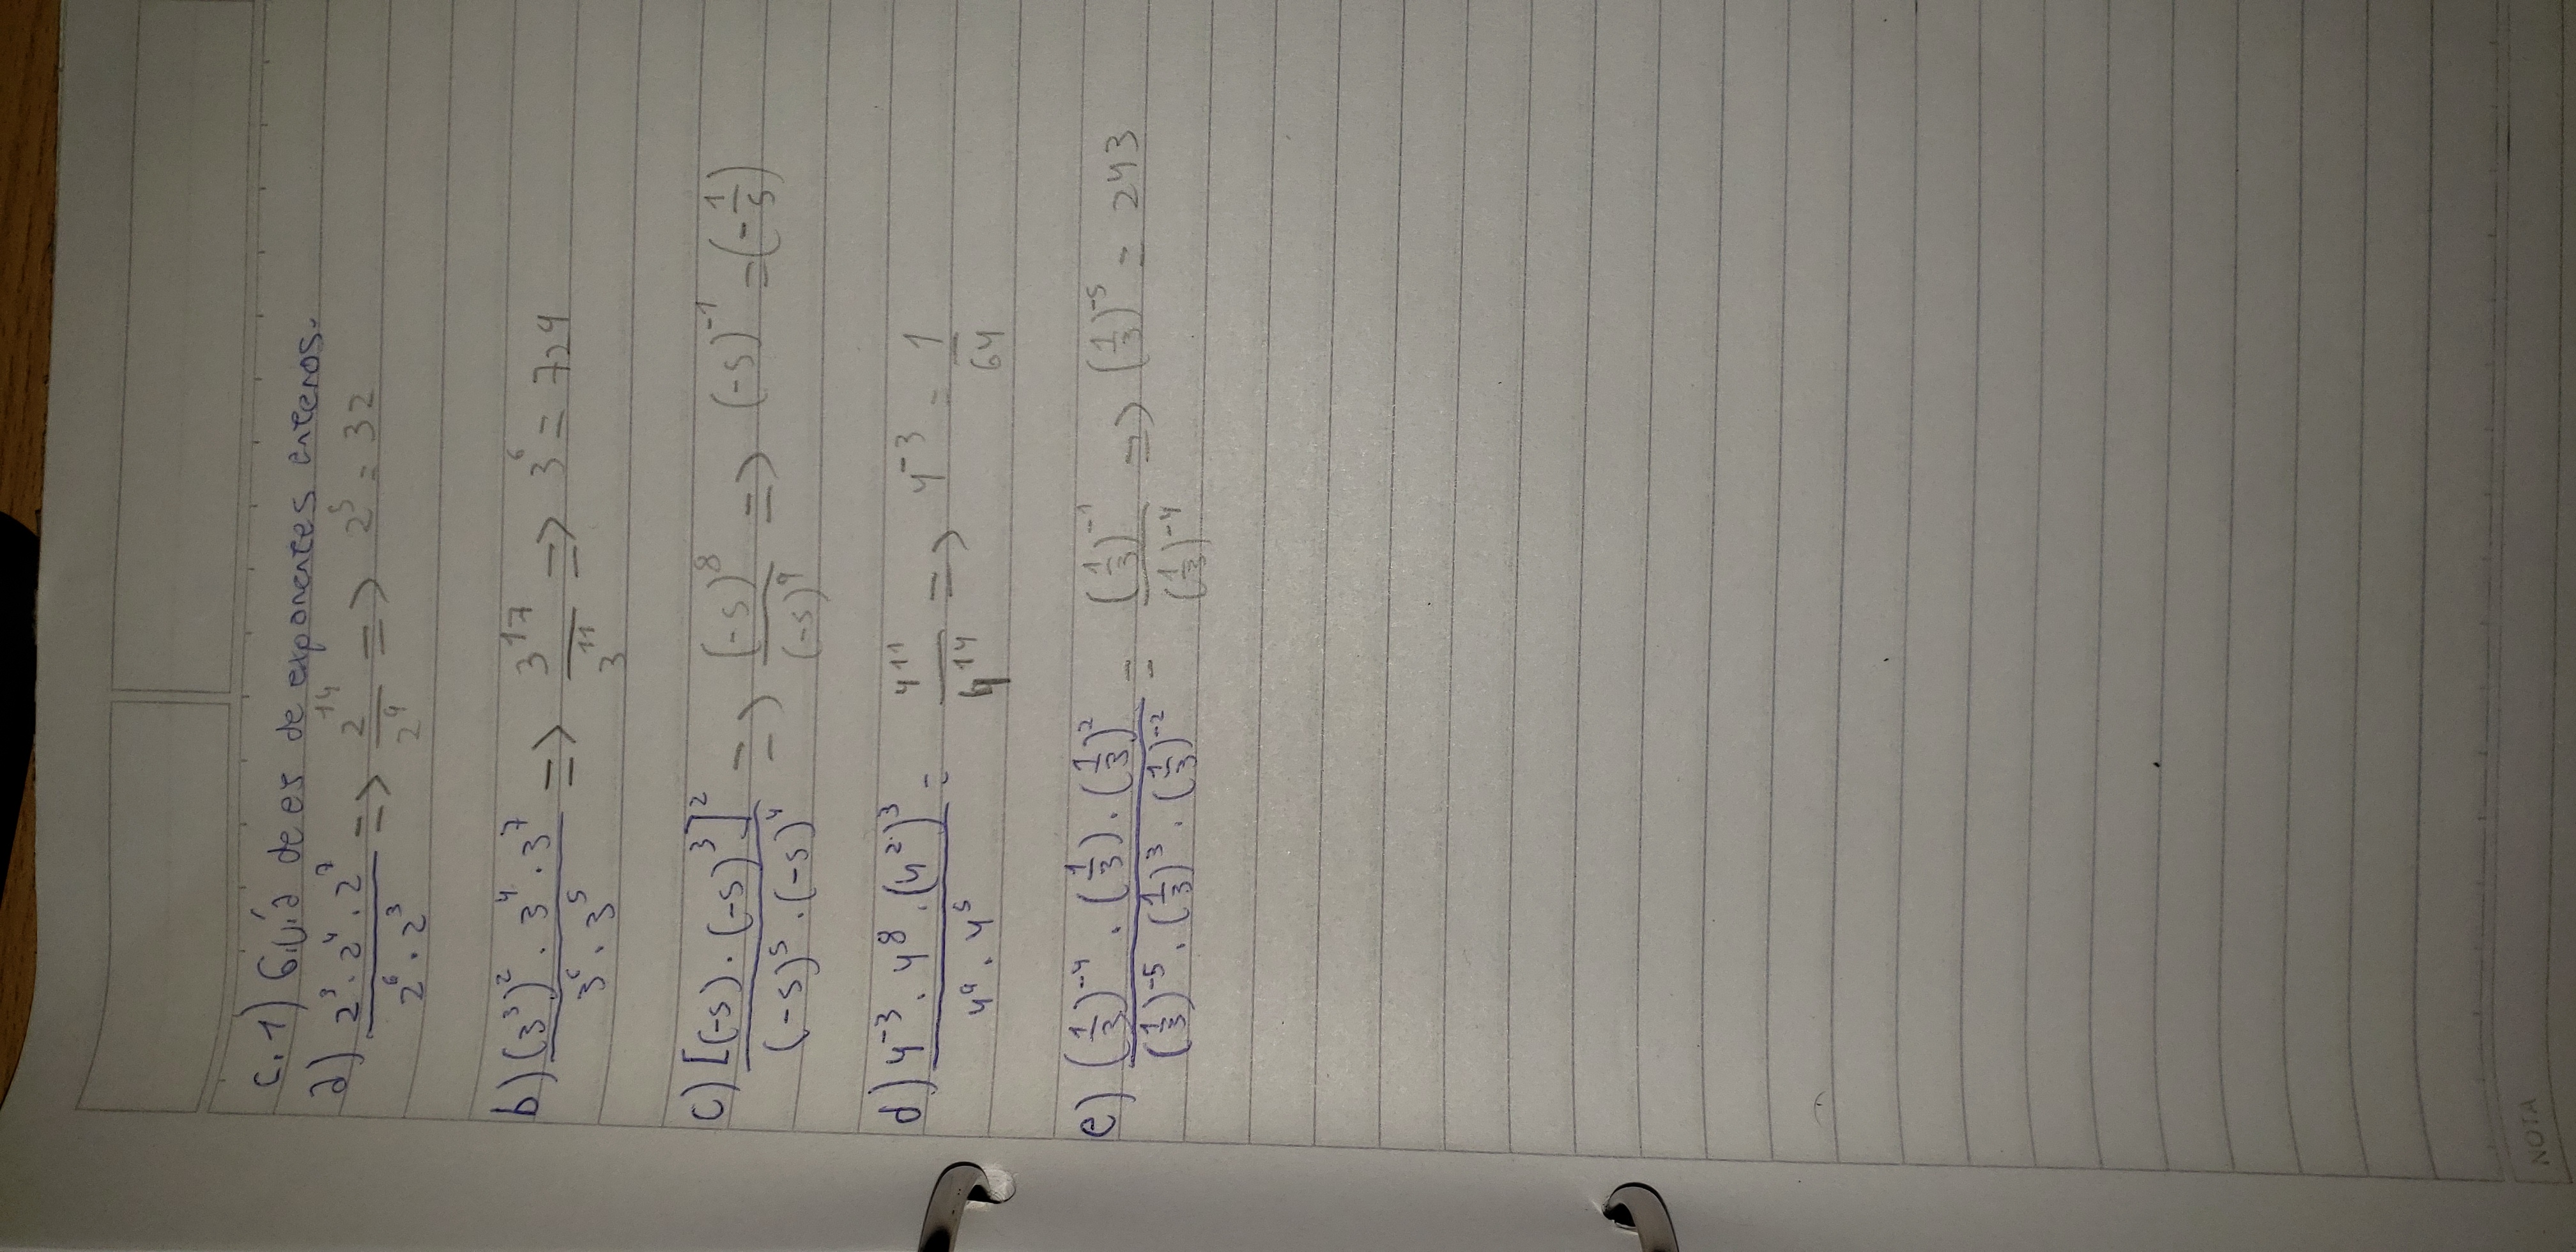 c.1) Guía de es de exponentes enteros.
a) (2³ · 2⁴ · 2⁷)/(2⁶ · 2³) => 2¹⁴/2⁹ => 2⁵ = 32
b) ((3³)² · 3⁴ · 3⁷)/(3⁶ · 3⁵) => 3¹⁷/3¹¹ => 3⁶ = 729
c) [(-5) · (-5)³]²/((-5)⁵ · (-5)⁴) => (-5)⁸/(-5)⁹ => (-5)⁻¹ = (-1/5)
d) (4⁻³ · 4⁸ · (4²)³)/(4⁹ · 4⁵) = 4¹¹/4¹⁴ => 4⁻³ = 1/64
e) ((1/3)⁻⁴ · (1/3) · (1/3)²)/((1/3)⁻⁵ · (1/3)³ · (1/3)⁻²) = (1/3)⁻¹/(1/3)⁻⁴ => (1/3)⁻⁵ = 243
NOTA